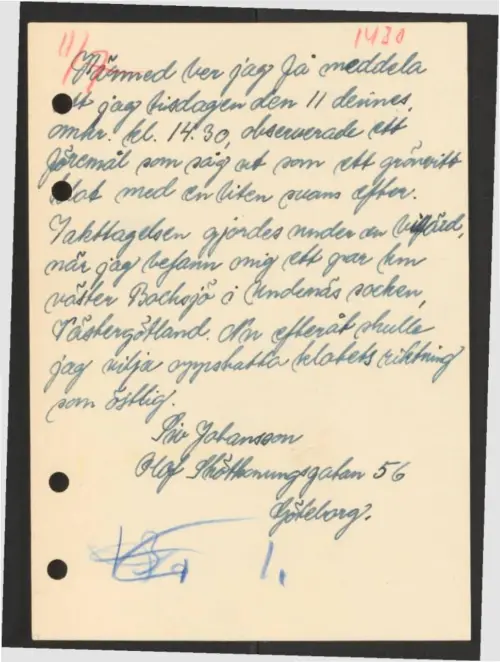 11/7 1430
Härmed ber jag få meddela
att jag tisdagen den 11 dennes,
omkr. kl. 14.30, observerade ett
föremål som såg ut som ett grönvitt
klot med en liten svans efter.
Iakttagelsen gjordes under en bilfärd,
när jag befann mig ett par km
väster Bocksjö i Undenäs socken,
Västergötland. Nu efteråt skulle
jag vilja uppskatta klotets riktning
som östlig.
Siv Johansson
Olof Skötkonungsgatan 56
Göteborg.
1.